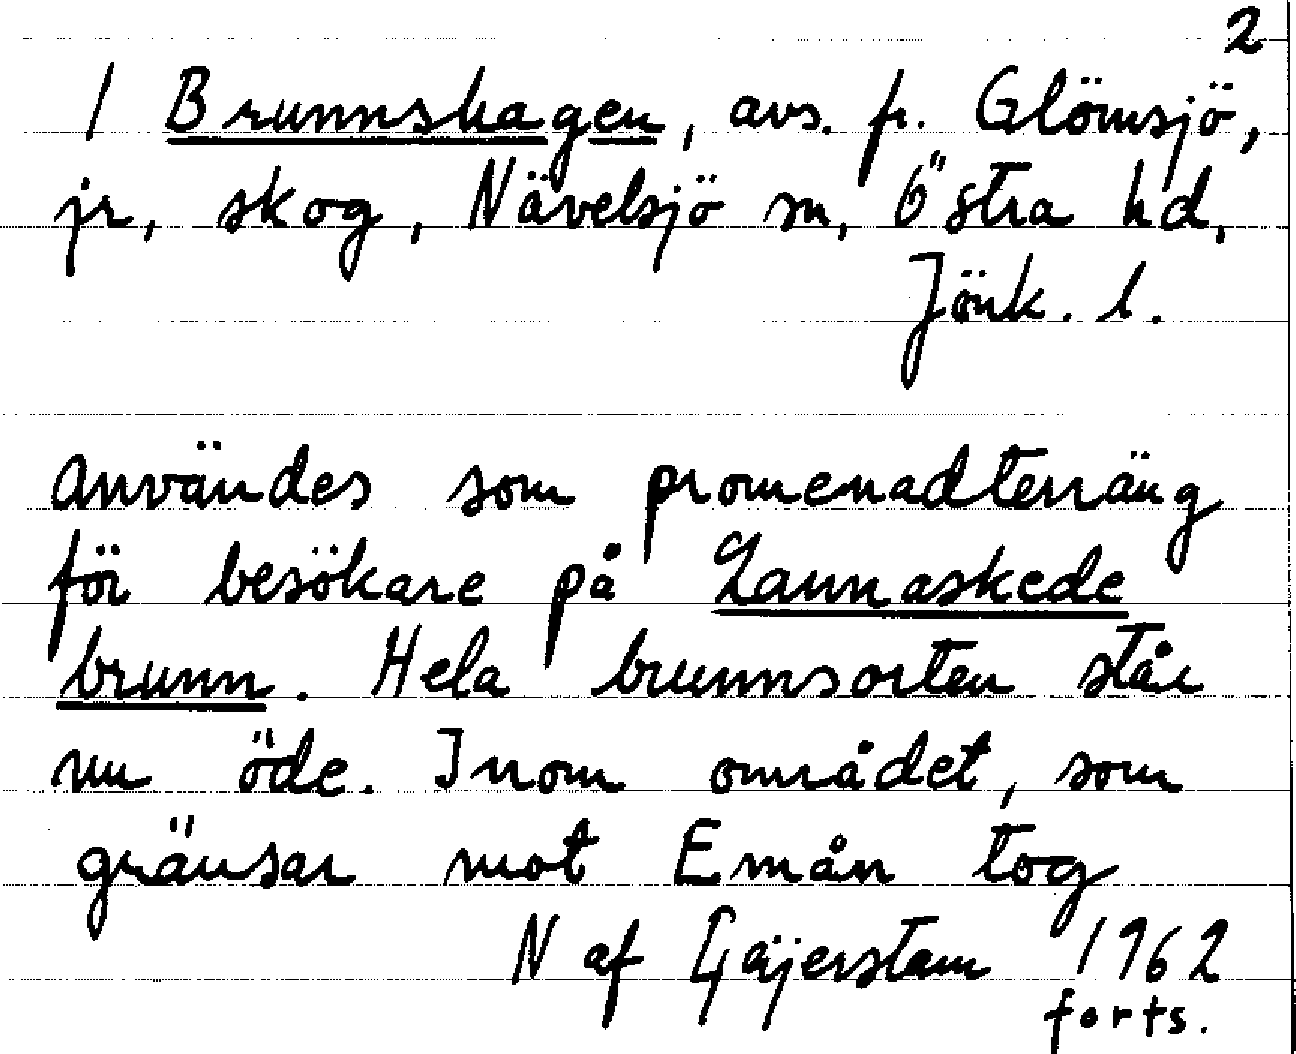 2
1 Brunnshagen, avs. fr. Glömsjö,
jr, skog, Nävelsjö sn, Östra hd,
Jönk. l.
Användes som promenadterräng
för besökare på Lannaskede
brunn. Hela brunnsorten står
nu öde. Inom området, som
gränsar mot Emån tog
N af Gäjerstam 1962
forts.